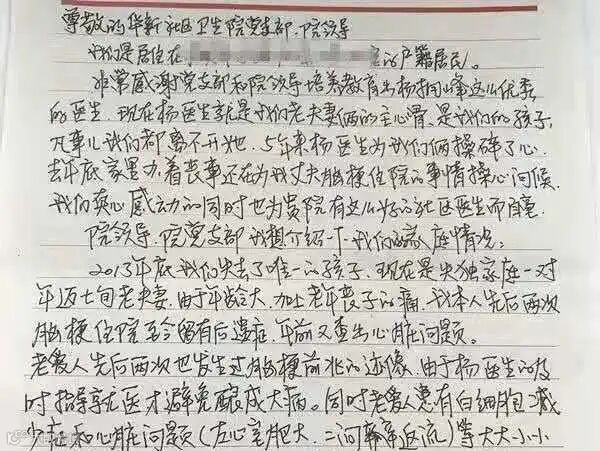 尊敬的华新社区卫生院党支部、院领导
我们是居住在 的户籍居民。
非常感谢党支部和院领导培养教育出杨拥峰这么优秀
的医生,现在杨医生就是我们老夫妻俩的主心骨,是我们的孩子,
凡事儿我们都离不开她,5年来杨医生为我们俩操碎了心,
去年底家里办着丧事还在为我丈夫脑梗住院的事情操心问候,
我们衷心感动的同时也为贵院有这么好的社区医生而自豪
院领导、院党支部我想介绍一下我们的家庭情况:
2013年底我们失去了唯一的孩子,现在是失独家庭一对
年迈七旬老夫妻,由于年龄大,加上老年丧子的痛,我本人先后两次
脑梗住院至今留有后遗症,年前又查出心脏问题。
老爱人先后两次也发生过脑梗前兆的迹像,由于杨医生的及
时指导就医才避免酿成大病。同时老爱人患有白细胞减
少症和心脏问题(左心室肥大,二间瓣膜返流)等大大小小